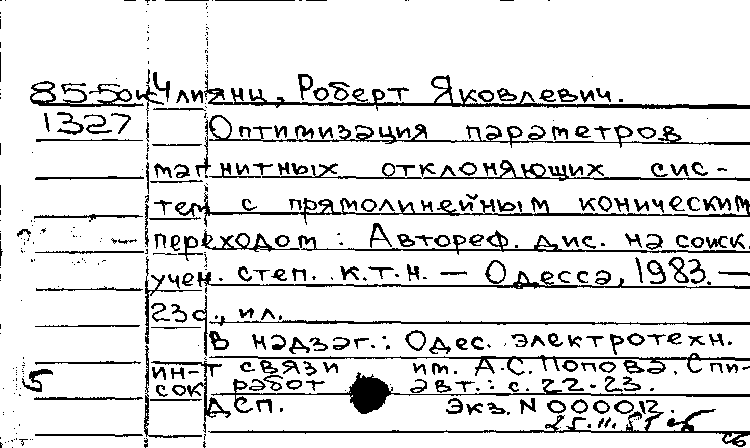 85-5 Члиянц, Роберт Яковлевич.
1327 Оптимизация параметров
магнитных отклоняющих сис-
тем с прямолинейным коническим
переходом : Автореф. дис. на соиск
учен. степ. к.т.н. — Одесса, 1983. —
23с., ил.
В надзаг.: Одес. электротехн.
ин-т связи им. А.С. Попова. Спи-
сок работ авт.: с. 22-23.
5
ДСП. Экз. N 000012.